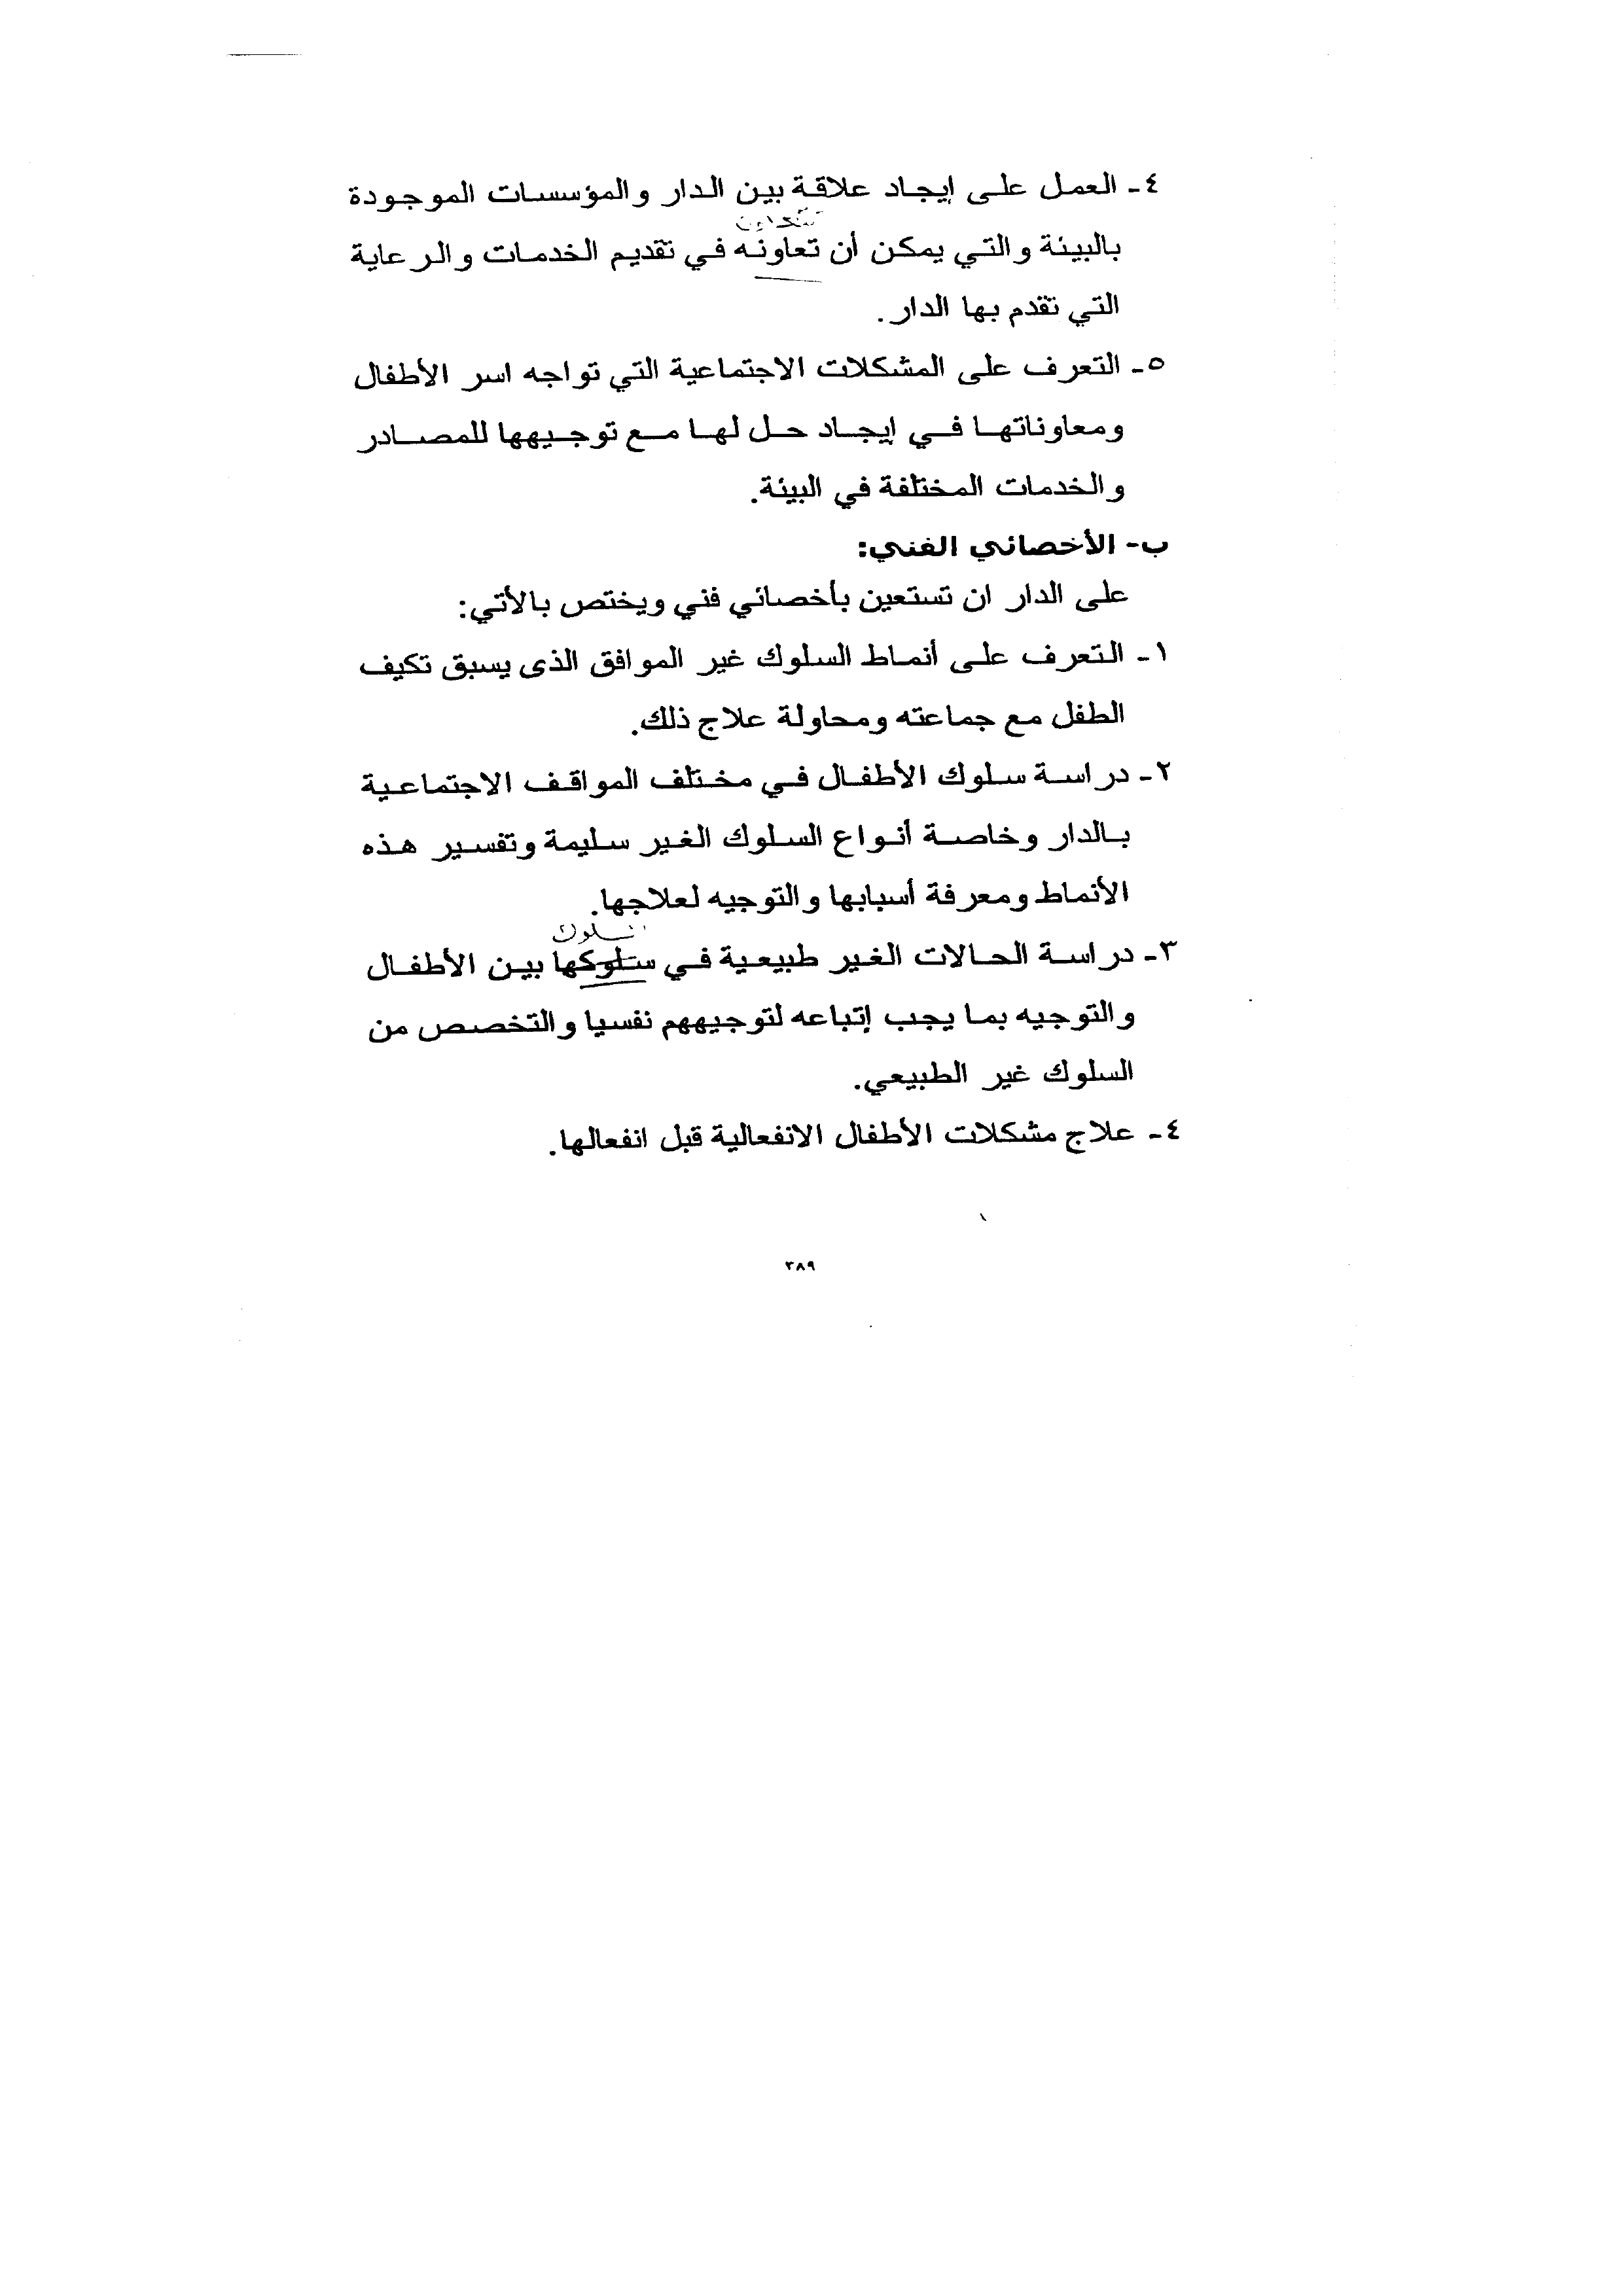 ٤- العمل على إيجاد علاقة بين الدار والمؤسسات الموجودة
تتعاون
بالبيئة والتي يمكن أن تعاونه في تقديم الخدمات والرعاية
التي تقدم بها الدار.
٥- التعرف على المشكلات الاجتماعية التي تواجه اسر الأطفال
ومعاوناتها في إيجاد حل لها مع توجيهها للمصادر
والخدمات المختلفة في البيئة.
ب- الأخصائي الفني:
على الدار ان تستعين بأخصائي فني ويختص بالأتي:
١- التعرف على أنماط السلوك غير الموافق الذى يسبق تكيف
الطفل مع جماعته ومحاولة علاج ذلك.
٢- دراسة سلوك الأطفال في مختلف المواقف الاجتماعية
بالدار وخاصة أنواع السلوك الغير سليمة وتفسير هذه
الأنماط ومعرفة أسبابها والتوجيه لعلاجها.
السلوك
٣- دراسة الحالات الغير طبيعية في سلوكها بين الأطفال
والتوجيه بما يجب إتباعه لتوجيههم نفسيا والتخصص من
السلوك غير الطبيعي.
٤- علاج مشكلات الأطفال الانفعالية قبل انفعالها.
٣٨٩